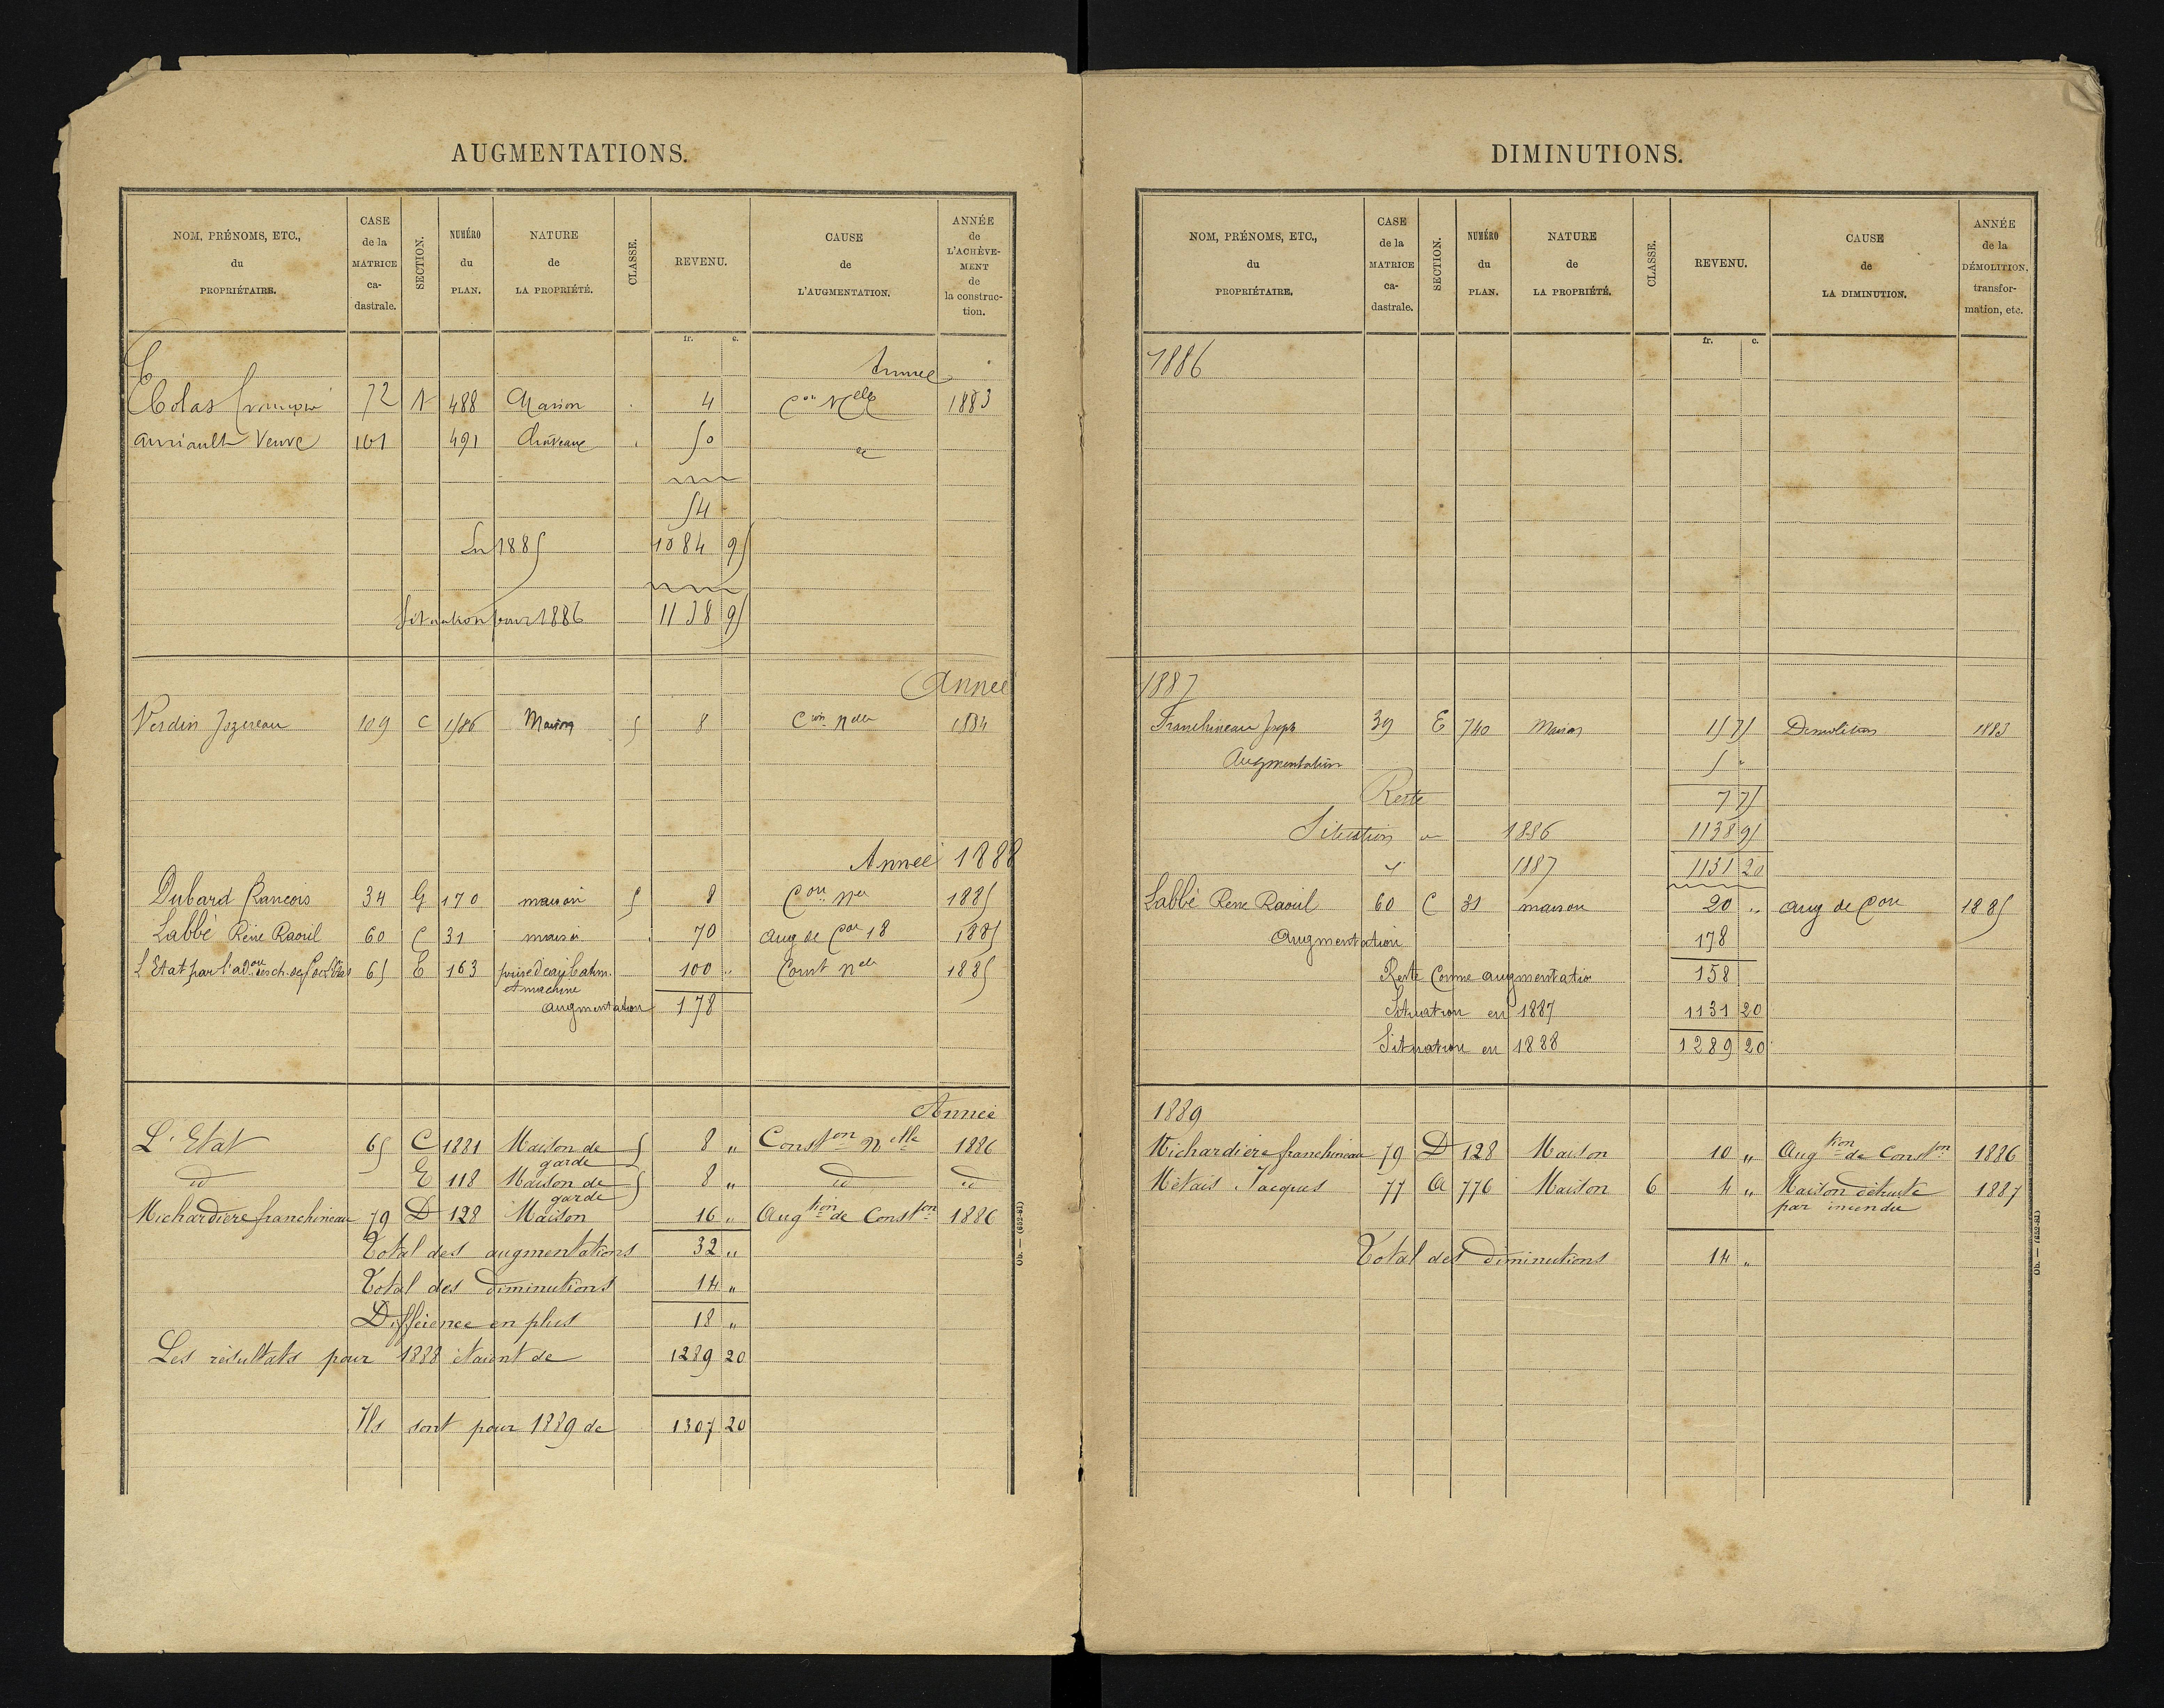 AUGMENTATIONS.
NOM, PRÉNOMS, ETC., du PROPRIÉTAIRE.
CASE de la MATRICE ca-dastrale.
SECTION.
NUMÉRO du PLAN.
NATURE de LA PROPRIÉTÉ.
CLASSE.
REVENU.
CAUSE de L'AUGMENTATION.
ANNÉE de L'ACHÈVE-MENT de la construc-tion.
fr. c.
Année
Colas 72 488 Maison 4 Con Nelle 1883
Veuve 101 491 Château 50 id
54
En 1885 1084 95
Situation pour 1886 1138 95
Année
Verdin Jozereau 109 C 1586 Maison 5 8 Con nelle 1884
Année 1888
Dubard Francois 34 G 170 maison 5 8 Con nelle 1885
Labbé Réné Raoul 60 C 31 maison 70 Aug de Con 18 1885
L'Etat par l'adon des ch. de f. de l'Etat 65 E 163 prise d'eau, batim. 100 " Const nelle 1885
et machine
augmentation 178
Année
L'Etat 65 C 1881 Maison de garde 5 8 " Conston nelle 1886
id E 118 Maison de garde 5 8 " id id
Michardière franchineau 79 D 128 Maison 16 " Augtion de Conston 1886
Total des augmentations 32 "
Total des diminutions 14 "
Différence en plus 18 "
Les résultats pour 1888 étaient de 1289 20
Ils sont pour 1889 de 1307 20
Ob. — (652-81)
DIMINUTIONS.
NOM, PRÉNOMS, ETC., du PROPRIÉTAIRE.
CASE de la MATRICE ca-dastrale.
SECTION.
NUMÉRO du PLAN.
NATURE de LA PROPRIÉTÉ.
CLASSE.
REVENU.
CAUSE de LA DIMINUTION.
ANNÉE de la DÉMOLITION, transfor-mation, etc.
fr. c.
1886
1887
Franchineau Joseph 39 E 740 Maison 15 75 Demolition 1883
Augmentation 8 "
Reste 7 75
Situation en 1886 1138 95
id 1887 1131 20
Labbé Réne Raoul 60 C 31 maison 20 " Aug de Con 1885
Augmentation 178
Reste Comme augmentatio 158
Situation en 1887 1131 20
Situation en 1888 1289 20
1889
Michardière franchineau 79 D 128 Maison 10 " Augtion de Conston 1886
Métais Jacques 77 A 776 Maison 6 4 " Maison détruite 1887
par incendie
Total des diminutions 14 "
Ob. — (652-81)